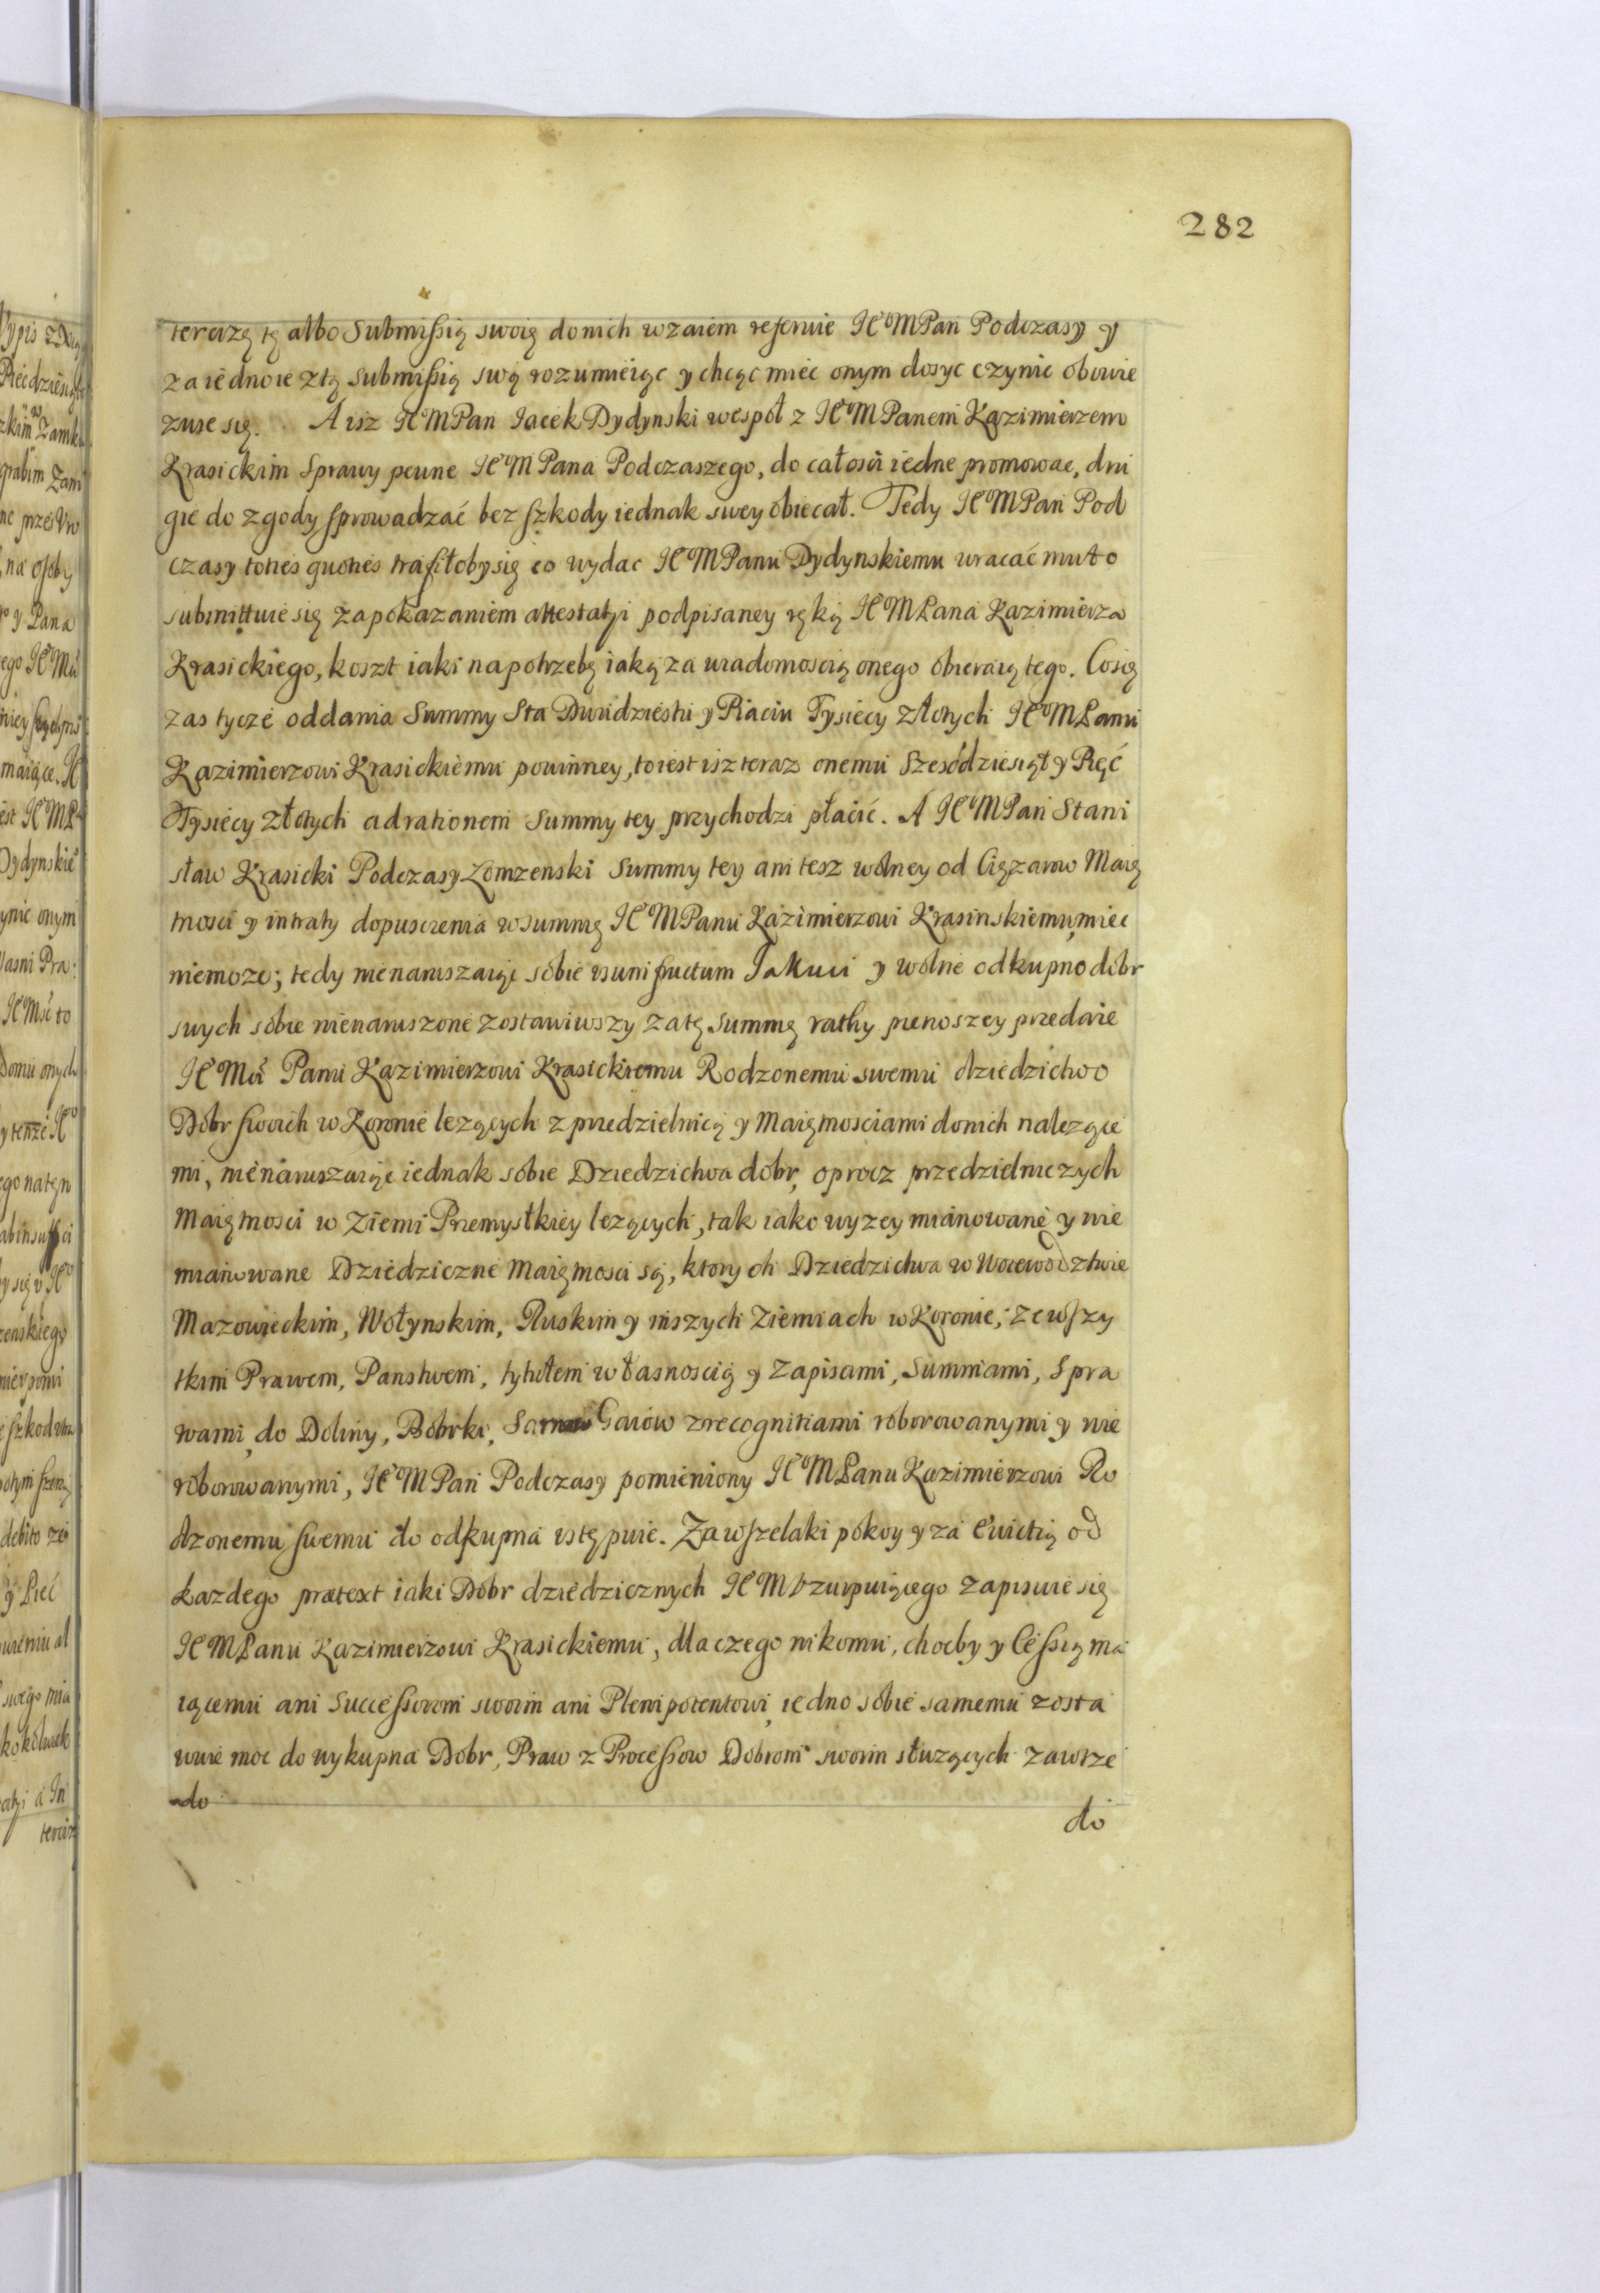 282
terazę tę albo Submissią swoią do nich wzaiem referuie JE͠MPan Podczasy y
za iedno ie z tą submissią swą rozumieiąc y chcąc miec onym dosyc czynic obowie
zuie się. A isz JE͠MPan Jacek Dydynski wespoł z JE͠MPanem Kazimierzem
Krasickim Sprawy pewne JE͠MPana Podczaszego, do całosci iedne promowac, dru
gie do zgody sprowadzać bez szkody iednak swey obiecał. Tedy JE͠MPan Pod
czasy toties quoties trafiłoby się co wydac JE͠MPanu Dydynskiemu wracać mu to
submittuie się za pokazaniem attestatyi podpisaney ręką JE͠MPana Kazimierza
Krasickiego, koszt iaki na potrzebę iaką za wiadomoscią onego obieraią tego. Co się
zas tycze oddania Summy Sta Dwudziestu y Piaciu Tysiecy złotych JE͠MPanu
Kazimierzowi Krasickiemu powinney, to iest isz teraz onemu Szesćdziesiąt y Pięć
Tysiecy złotych ad rationem Summy tey przychodzi płacić. A JE͠MPan Stani
sław Krasicki Podczasy Lomzenski Summy tey ani tesz wolney od Cięzarow Maię
tnosci y intraty dopuszczenia w summę JE͠MPanu Kazimierzowi Krasinskiemu, miec
niemoze; tedy nienaruszaiąc sobie usumfructum y wolne odkupno dobr
swych sobie nienaruszone zostawiwszy za tę summę rathy przedaie
JE͠Mći Panu Kazimierzowi Krasickiemu Rodzonemu swemu dziedzictwo
Dobr swoich w Koronie lezących z przedzielnicą y Maiętnosciami do nich nalezące
mi, nienaruszaiąc iednak sobie Dziedzictwa dobr, oprocz przedzielniczych
Maiętnosci w Ziemi Przemyslkiey lezących, tak iako wyzey mianowane y nie
mianowane Dziedziczne Maiętnosci są, ktorych Dziedzictwa w Woiewodztwie
Mazowieckim, Wołynskim, Ruskim y inszych Ziemiach w Koronie, ze wszy
tkim Prawem, Panstwem, tytułem własnoscią y Zapisami, Summami, Spra
wami, do Doliny, Bobrki, Gaiow z recognitiami roborowanymi y nie
roborowanymi, JE͠MPan Podczasy pomieniony JE͠MPanu Kazimierzowi Ro
dzonemu swemu do odkupna ustępuie. Za wszelaki pokoy y za Ewictią od
kazdego praetext iaki Dobr dziedzicznych JE͠M Uzurpuiącego zapisuie się
JE͠MPanu Kazimierzowi Krasickiemu, dla czego nikomu, chocby y Cessią ma
iącemu ani Successorom swoim ani Plenipotentowi, iedno sobie samemu zosta
wuie moc do wykupna Dobr, Praw z Processow Dobrom swoim słuzących zawrze
do
do